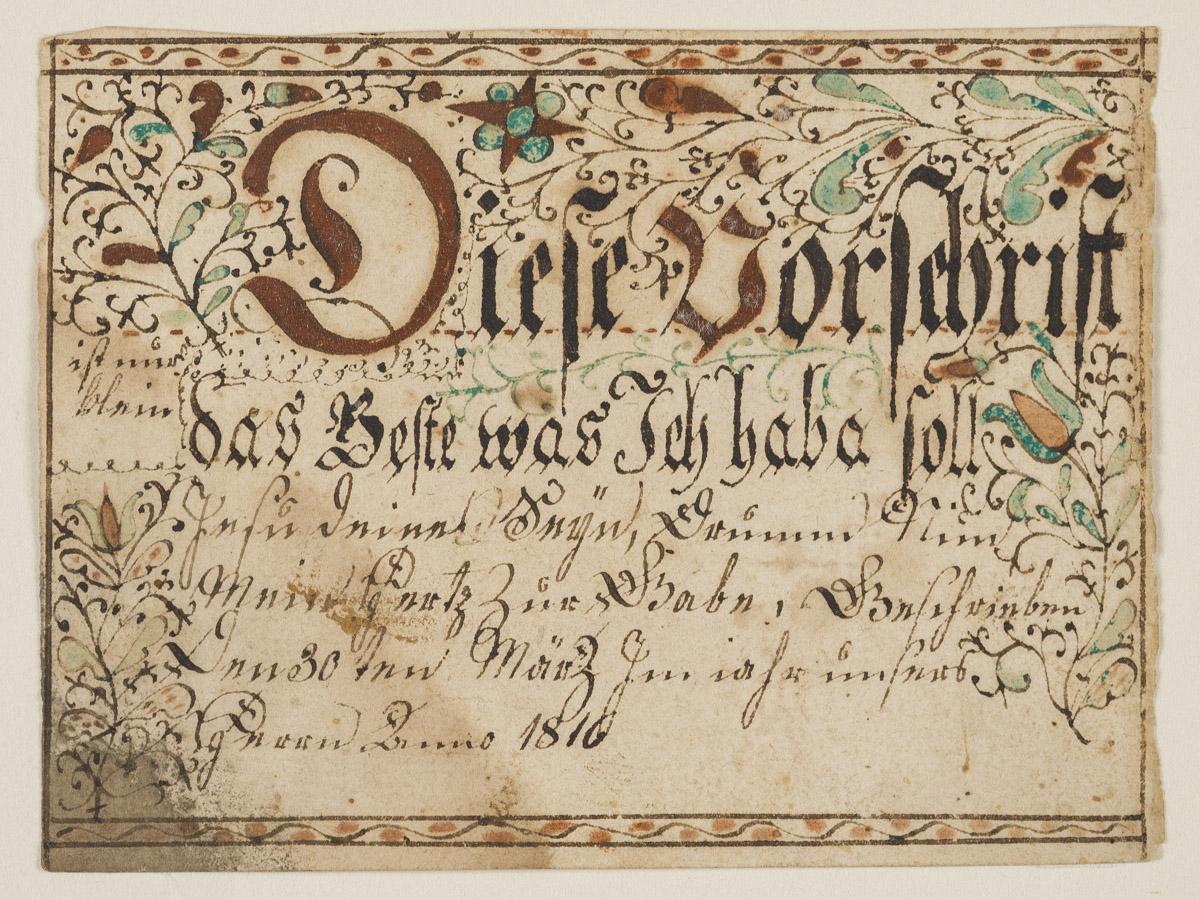 Diese Vorschrift
ist nur
klein
das Beste was Ich haba soll
Jesu deines Seÿn, Drumm Nim
Mein Hertz Zur Gabe, Geschrieben
Den 30 ten März Im iahr unsers
Herrn Anno 1816